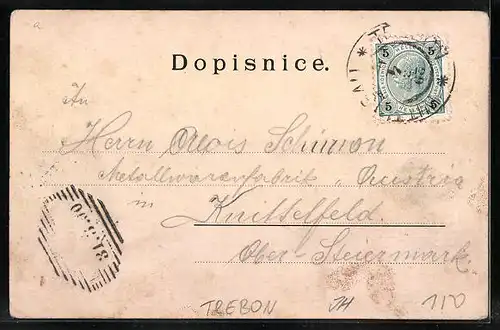 a
Dopisnice.
5 5
5 5
An
Herrn Alois Schiwon
Metallwarenfabrik „Austria
in
Knittelfeld.
Ober-Steiermark
TREBON JH 110